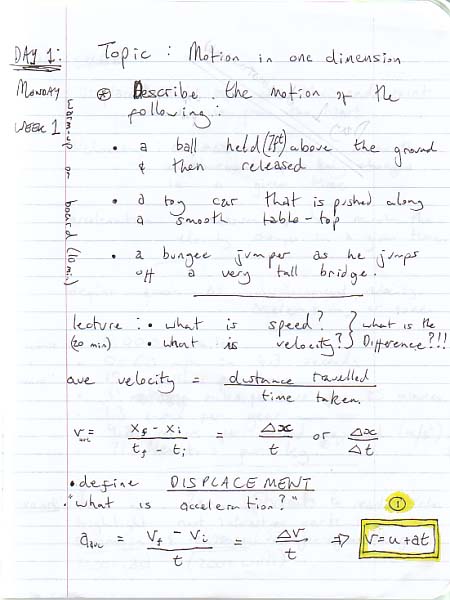 DAY 1: Topic : Motion in one dimension
MONDAY
WEEK 1
⊛ Describe the motion of the
following:
• a ball held (7ft) above the ground
& then released
• a toy car that is pushed along
a smooth table-top
• a bungee jumper as he jumps
off a very tall bridge.
warm-up on board (10 min)
lecture : • what is speed? } what is the
(20 min) • what is velocity? } Difference?!!
ave velocity = distance travelled / time taken.
v ave = xf - xi / tf - ti = Δx / t or Δx / Δt
• define DISPLACEMENT
• "what is acceleration?" ①
a ave = Vf - Vi / t = ΔV / t ⇒ V=u+at